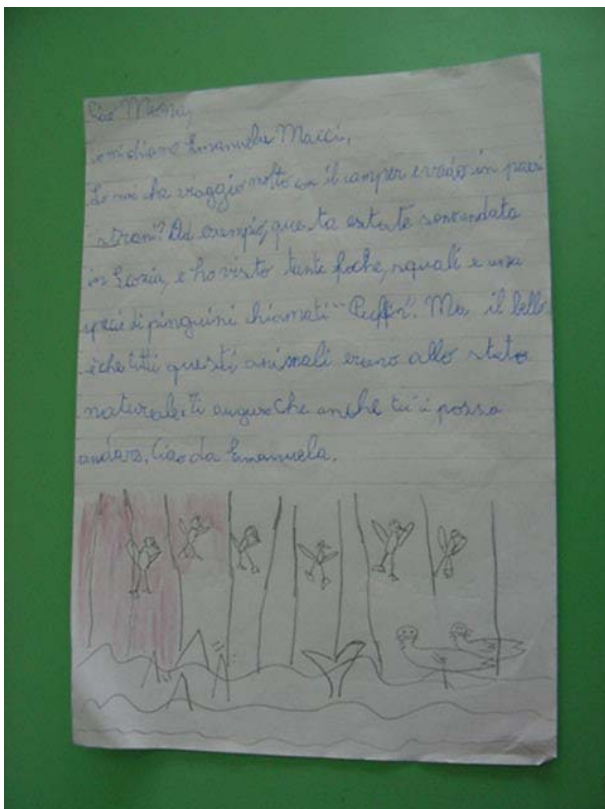 Ciao
io mi chiamo Emanuela Macci,
Io viaggio molto con il camper e vado in paesi
strani? Ad esempio, que ta estate sono andata
in Scozia, e ho visto tante foche, squali e una
speci di pinguini chiamati "Puffin". Ma, il bello
è che tutti questi animali erano allo stato
naturale. Ti auguro che anche tu ci possa
andare. Ciao da Emanuela.